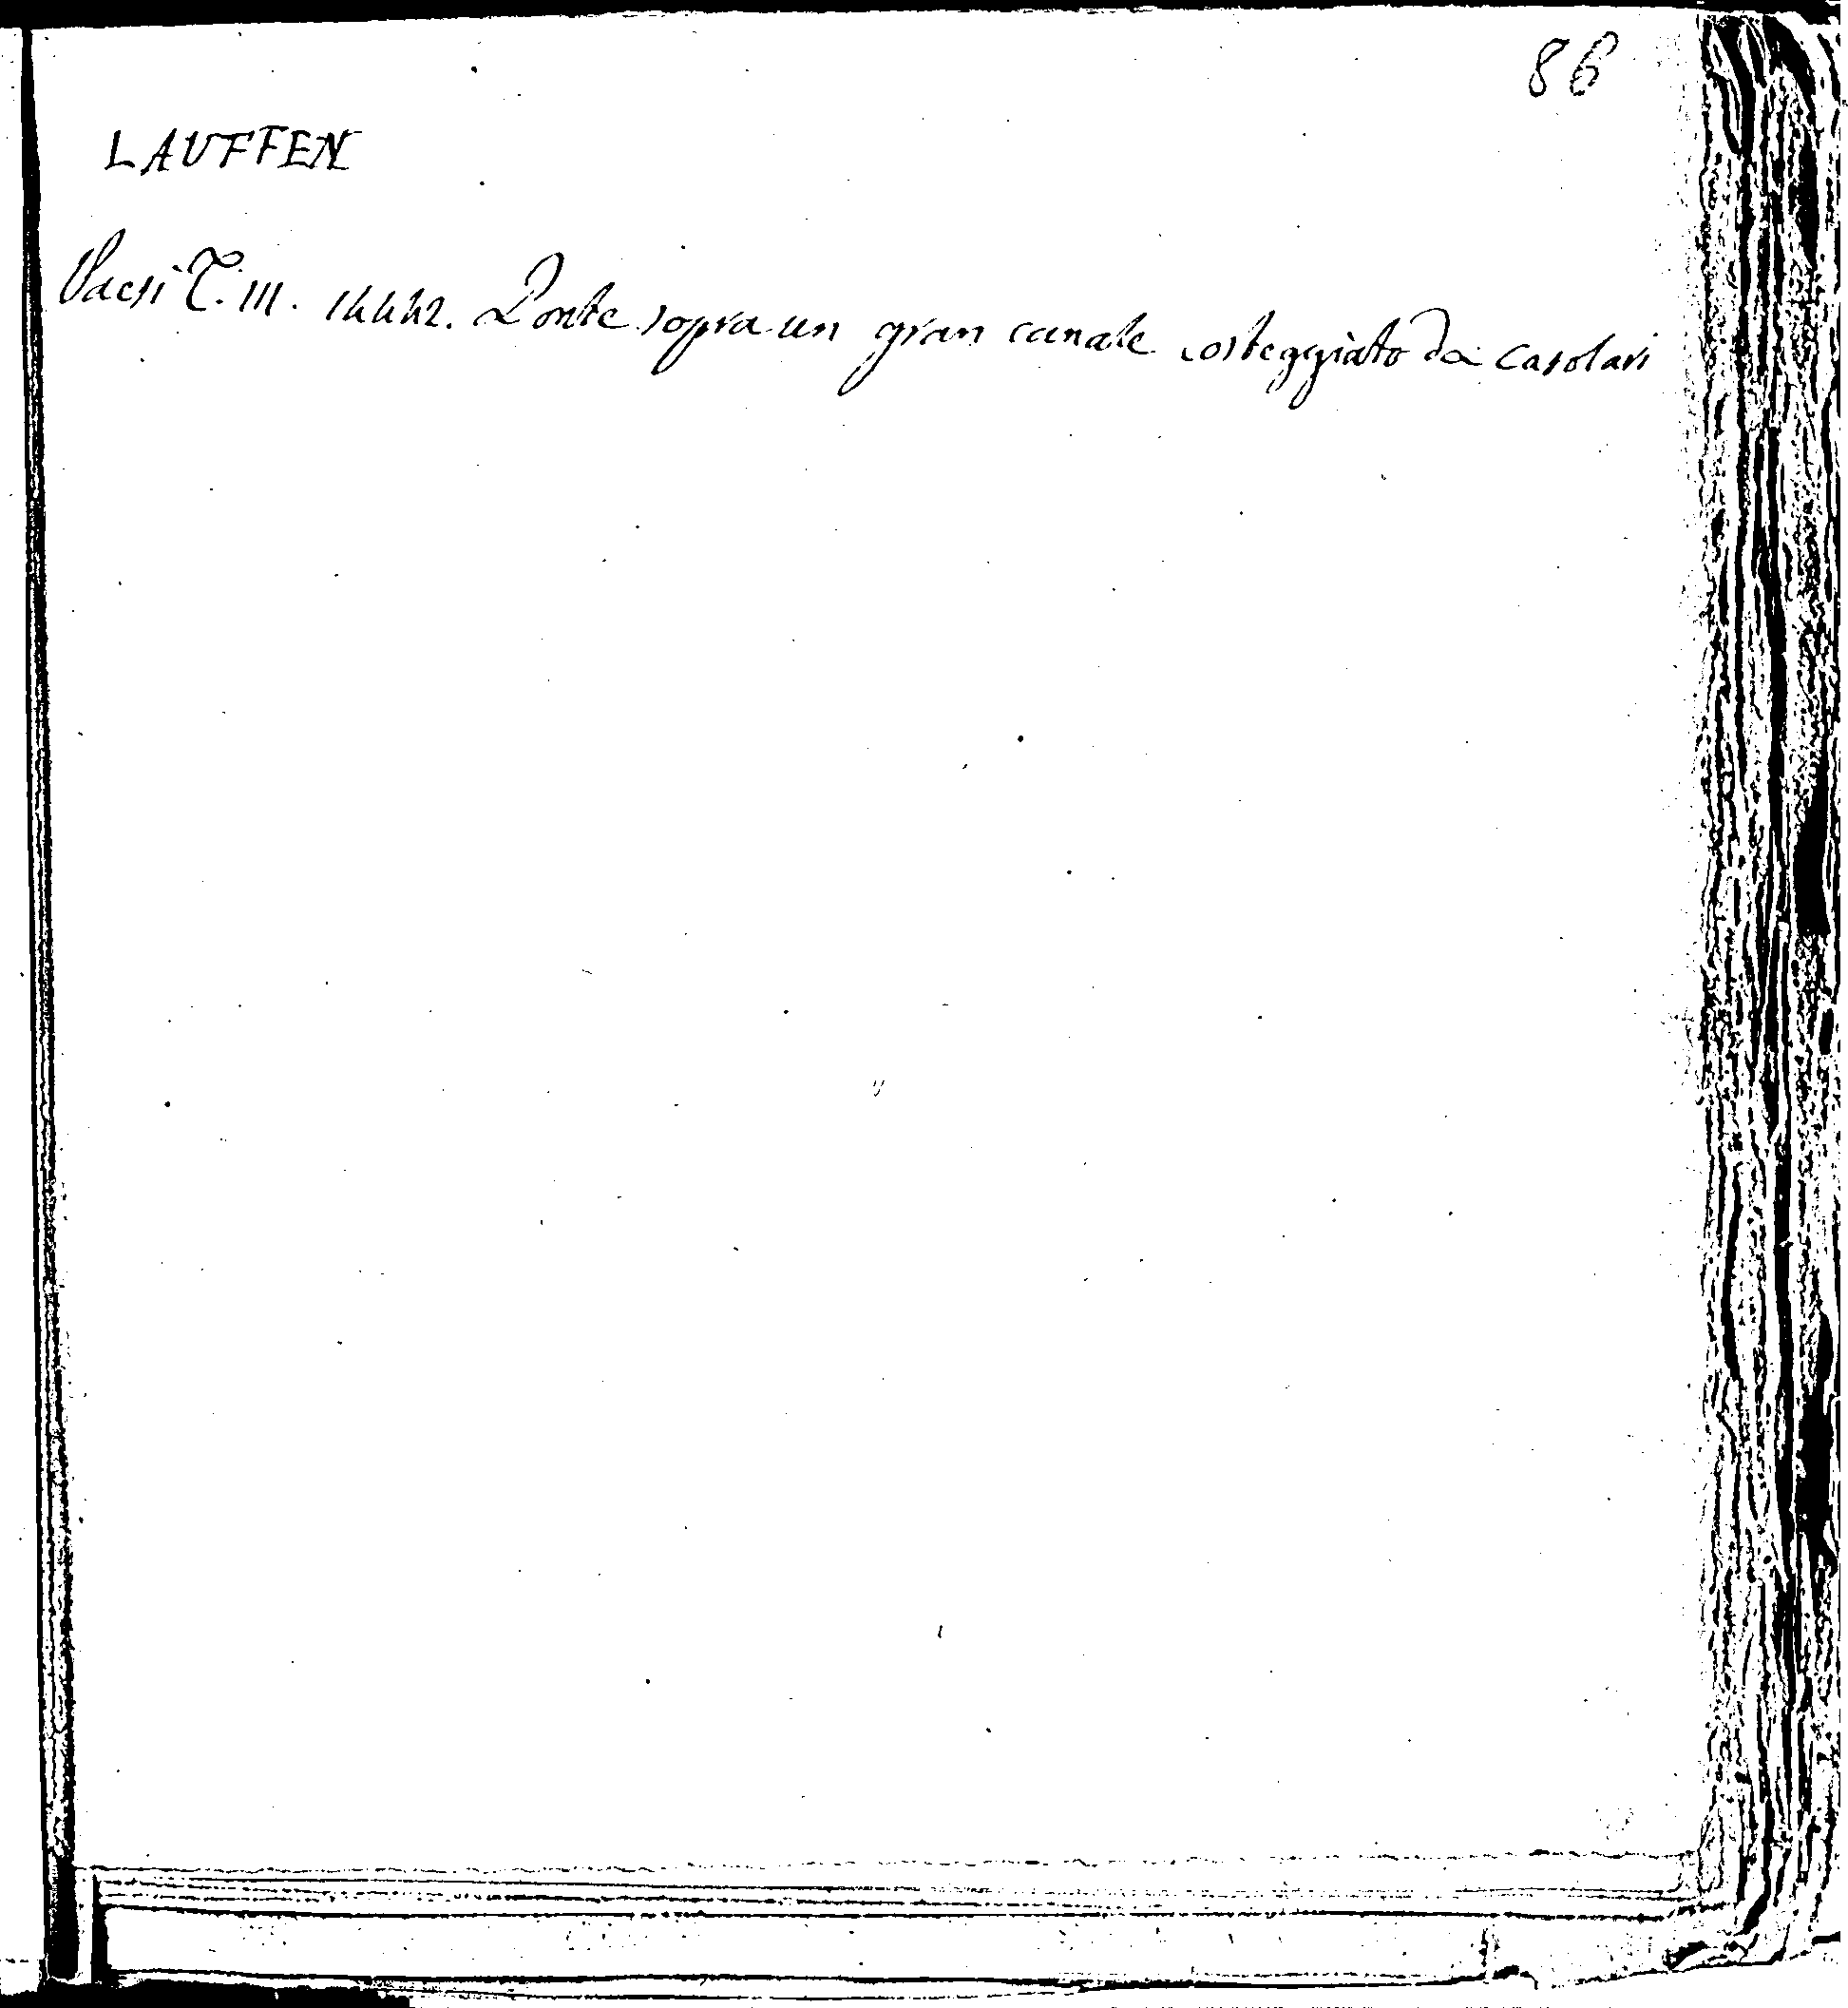 86
LAUFFEN
Paesi T. III. 14442. Ponte sopra un gran canale costeggiato da casolari